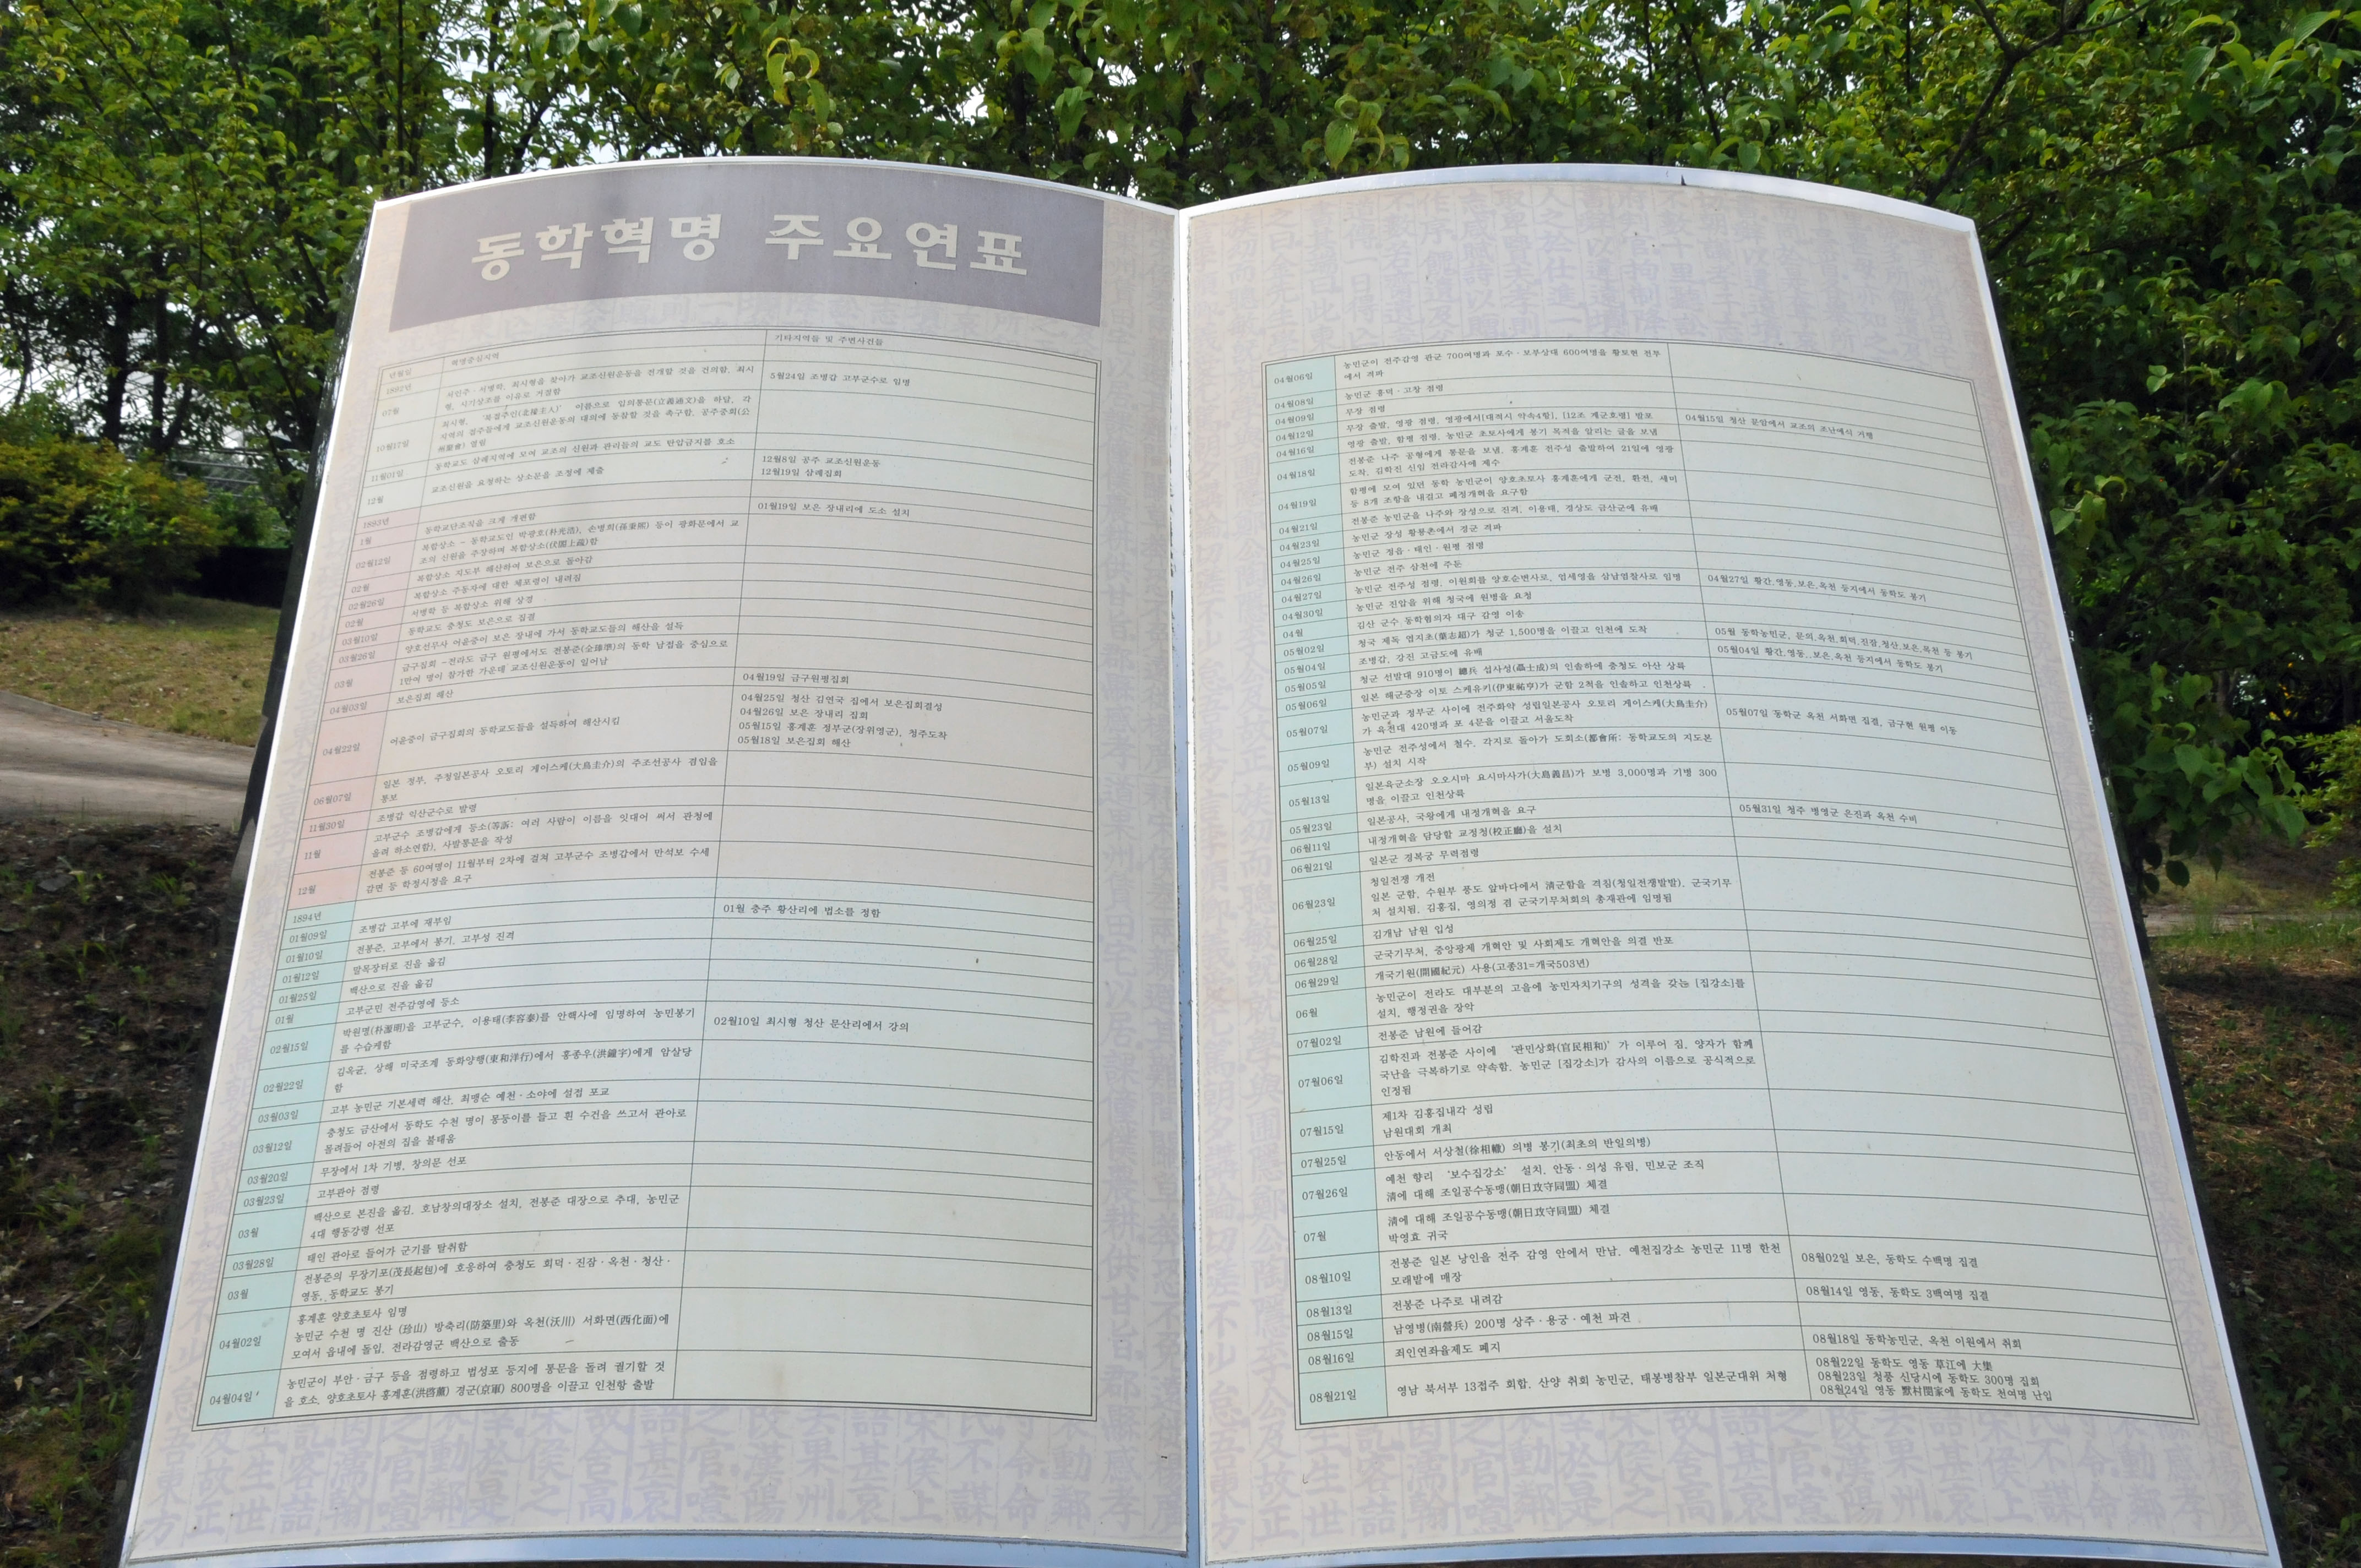 동학혁명 주요연표
년월일 혁명중심지역 기타지역들 및 주변사건들
1892년
07월 서인주·서병학, 최시형을 찾아가 교조신원운동을 전개할 것을 건의함, 최시
형, 시기상조를 이유로 거절함
5월24일 조병갑 고부군수로 임명
10월17일 최시형, '북접주인(北接主人)' 이름으로 입의통문(立義通文)을 하달, 각
지역의 접주들에게 교조신원운동의 대의에 동참할 것을 촉구함, 공주중회(公
州聚會) 열림
11월01일 동학교도 삼례지역에 모여 교조의 신원과 관리들의 교도 탄압금지를 호소
12월 교조신원을 요청하는 상소문을 조정에 제출
12월8일 공주 교조신원운동
12월19일 삼례집회
1893년
1월 동학교단조직을 크게 개편함
01월19일 보은 장내리에 도소 설치
02월12일 복합상소 - 동학교도인 박광호(朴光浩), 손병희(孫秉熙) 등이 광화문에서 교
조의 신원을 주장하며 복합상소(伏閤上疏)함
02월 복합상소 지도부 해산하여 보은으로 돌아감
02월26일 복합상소 주동자에 대한 체포령이 내려짐
02월 서병학 등 복합상소 위해 상경
03월10일 동학교도 충청도 보은으로 집결
03월26일 양호선무사 어윤중이 보은 장내에 가서 동학교도들의 해산을 설득
03월 금구집회 -전라도 금구 원평에서도 전봉준(全琫準)의 동학 남접을 중심으로
1만여 명이 참가한 가운데 교조신원운동이 일어남
04월03일 보은집회 해산
04월19일 금구원평집회
04월22일 어윤중이 금구집회의 동학교도들을 설득하여 해산시킴
04월25일 청산 김연국 집에서 보은집회결성
04월26일 보은 장내리 집회
05월15일 홍계훈 정부군(장위영군), 청주도착
05월18일 보은집회 해산
06월07일 일본 정부, 주청일본공사 오토리 게이스케(大鳥圭介)의 주조선공사 겸임을
통보
11월30일 조병갑 익산군수로 발령
11월 고부군수 조병갑에게 등소(等訴; 여러 사람이 이름을 잇대어 써서 관청에
올려 하소연함), 사발통문을 작성
12월 전봉준 등 60여명이 11월부터 2차에 걸쳐 고부군수 조병갑에서 만석보 수세
감면 등 학정시정을 요구
1894년
01월09일 조병갑 고부에 재부임
01월 충주 황산리에 법소를 정함
01월10일 전봉준, 고부에서 봉기, 고부성 진격
01월12일 말목장터로 진을 옮김
01월25일 백산으로 진을 옮김
01월 고부군민 전주감영에 등소
02월15일 박원명(朴源明)을 고부군수, 이용태(李容泰)를 안핵사에 임명하여 농민봉기
를 수습케함
02월10일 최시형 청산 문산리에서 강의
02월22일 김옥균, 상해 미국조계 동화양행(東和洋行)에서 홍종우(洪鐘宇)에게 암살당
함
03월03일 고부 농민군 기본세력 해산, 최맹순 예천·소야에 설접 포교
03월12일 충청도 금산에서 동학도 수천 명이 몽둥이를 들고 흰 수건을 쓰고서 관아로
몰려들어 아전의 집을 불태움
03월20일 무장에서 1차 기병, 창의문 선포
03월23일 고부관아 점령
03월 백산으로 본진을 옮김. 호남창의대장소 설치, 전봉준 대장으로 추대, 농민군
4대 행동강령 선포
03월28일 태인 관아로 들어가 군기를 탈취함
03월 전봉준의 무장기포(茂長起包)에 호응하여 충청도 회덕·진잠·옥천·청산·
영동, 동학교도 봉기
04월02일 홍계훈 양호초토사 임명
농민군 수천 명 진산 (珍山) 방축리(防築里)와 옥천(沃川) 서화면(西化面)에
모여서 읍내에 돌입, 전라감영군 백산으로 출동
04월04일 농민군이 부안·금구 등을 점령하고 법성포 등지에 통문을 돌려 궐기할 것
을 호소. 양호초토사 홍계훈(洪啓薰) 경군(京軍) 800명을 이끌고 인천항 출발
04월06일 농민군이 전주감영 관군 700여명과 포수·보부상대 600여명을 황토현 전투
에서 격파
04월08일 농민군 흥덕·고창 점령
04월09일 무장 점령
04월12일 무장 출발, 영광 점령, 영광에서[대적시 약속4항], [12조 계군호령] 발포
04월15일 청산 문암에서 교조의 조난예식 거행
04월16일 영광 출발, 함평 점령, 농민군 초토사에게 봉기 목적을 알리는 글을 보냄
04월18일 전봉준 나주 공형에게 통문을 보냄. 홍계훈 전주성 출발하여 21일에 영광
도착, 김학진 신임 전라감사에 제수
04월19일 함평에 모여 있던 동학 농민군이 양호초토사 홍계훈에게 군전, 환전, 세미
등 8개 조항을 내걸고 폐정개혁을 요구함
04월21일 전봉준 농민군을 나주와 장성으로 진격, 이용태, 경상도 금산군에 유배
04월23일 농민군 장성 황룡촌에서 경군 격파
04월25일 농민군 정읍·태인·원평 점령
04월26일 농민군 전주 삼천에 주둔
04월27일 농민군 전주성 점령, 이원회를 양호순변사로, 엄세영을 삼남염찰사로 임명
04월27일 황간,영동,보은,옥천 등지에서 동학도 봉기
04월30일 농민군 진압을 위해 청국에 원병을 요청
04월 김산 군수 동학혐의자 대구 감영 이송
05월02일 청국 제독 엽지초(葉志超)가 청군 1,500명을 이끌고 인천에 도착
05월 동학농민군, 문의,옥천,회덕,진잠,청산,보은,목천 등 봉기
05월04일 조병갑, 강진 고금도에 유배
05월04일 황간,영동,,보은,옥천 등지에서 동학도 봉기
05월05일 청군 선발대 910명이 總兵 섭사성(聶士成)의 인솔하에 충청도 아산 상륙
05월06일 일본 해군중장 이토 스케유키(伊東祐亨)가 군함 2척을 인솔하고 인천상륙
05월07일 농민군과 정부군 사이에 전주화약 성립일본공사 오토리 게이스케(大鳥圭介)
가 육전대 420명과 포 4문을 이끌고 서울도착
05월07일 동학군 옥천 서화면 집결, 금구현 원평 이동
05월09일 농민군 전주성에서 철수. 각지로 돌아가 도회소(都會所; 동학교도의 지도본
부) 설치 시작
05월13일 일본육군소장 오오시마 요시마사가(大島義昌)가 보병 3,000명과 기병 300
명을 이끌고 인천상륙
05월23일 일본공사, 국왕에게 내정개혁을 요구
05월31일 청주 병영군 은진과 옥천 수비
06월11일 내정개혁을 담당할 교정청(校正廳)을 설치
06월21일 일본군 경복궁 무력점령
06월23일 청일전쟁 개전
일본 군함, 수원부 풍도 앞바다에서 淸군함을 격침(청일전쟁발발). 군국기무
처 설치됨, 김홍집, 영의정 겸 군국기무처회의 총재관에 임명됨
06월25일 김개남 남원 입성
06월28일 군국기무처, 중앙광제 개혁안 및 사회제도 개혁안을 의결 반포
06월29일 개국기원(開國紀元) 사용(고종31=개국503년)
06월 농민군이 전라도 대부분의 고을에 농민자치기구의 성격을 갖는 [집강소]를
설치, 행정권을 장악
07월02일 전봉준 남원에 들어감
07월06일 김학진과 전봉준 사이에 '관민상화(官民相和)'가 이루어 짐, 양자가 함께
국난을 극복하기로 약속함, 농민군 [집강소]가 감사의 이름으로 공식적으로
인정됨
07월15일 제1차 김홍집내각 성립
남원대회 개최
07월25일 안동에서 서상철(徐相轍) 의병 봉기(최초의 반일의병)
07월26일 예천 향리 '보수집강소' 설치, 안동·의성 유림, 민보군 조직
淸에 대해 조일공수동맹(朝日攻守同盟) 체결
07월 淸에 대해 조일공수동맹(朝日攻守同盟) 체결
박영효 귀국
08월10일 전봉준 일본 낭인을 전주 감영 안에서 만남. 예천집강소 농민군 11명 한천
모래밭에 매장
08월02일 보은, 동학도 수백명 집결
08월13일 전봉준 나주로 내려감
08월14일 영동, 동학도 3백여명 집결
08월15일 남영병(南營兵) 200명 상주·용궁·예천 파견
08월16일 죄인연좌율제도 폐지
08월18일 동학농민군, 옥천 이원에서 취회
08월21일 영남 북서부 13접주 회합, 산양 취회 농민군, 태봉병참부 일본군대위 처형
08월22일 동학도 영동 草江에 大集
08월23일 청풍 신당시에 동학도 300명 집회
08월24일 영동 默村閔家에 동학도 천여명 난입